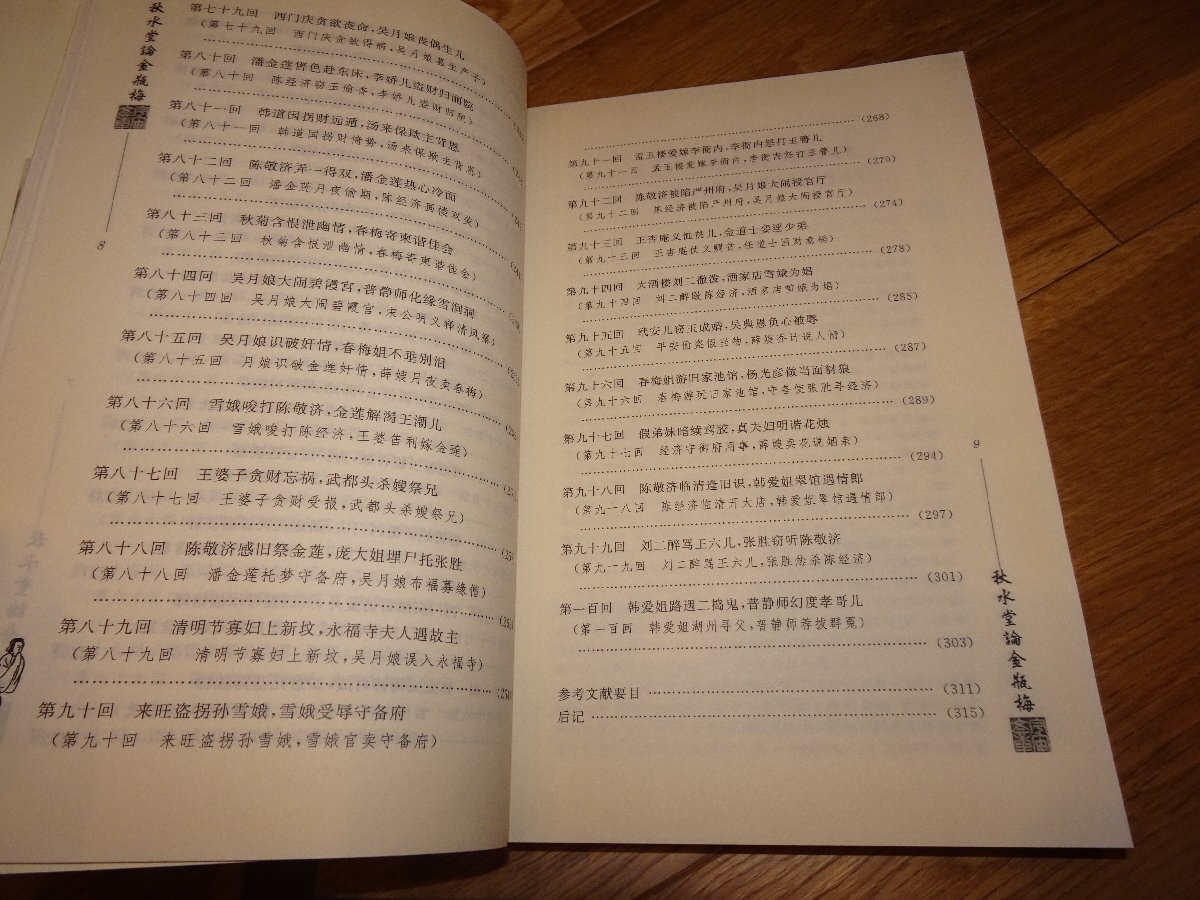 秋水堂論金瓶梅
第七十九回 西门庆贪欲丧命,吴月娘丧偶生儿
(第七十九回 西门庆贪欲得病,吴月娘墓生产子)
第八十回 潘金莲售色赴东床,李娇儿盗财归丽院
(第八十回 陈经济窃玉偷香,李娇儿盗财归院)
第八十一回 韩道国拐财远遁,汤来保欺主背恩
(第八十一回 韩道国拐财倚势,汤来保欺主背恩)
第八十二回 陈敬济弄一得双,潘金莲热心冷面
(第八十二回 潘金莲月夜偷期,陈经济画楼双美)
第八十三回 秋菊含恨泄幽情,春梅寄柬谐佳会
(第八十三回 秋菊含恨泄幽情,春梅寄柬谐佳会)
8
第八十四回 吴月娘大闹碧霞宫,普静师化缘雪涧洞
(第八十四回 吴月娘大闹碧霞宫,宋公明义释清风寨)
第八十五回 吴月娘识破奸情,春梅姐不垂别泪
(第八十五回 月娘识破金莲奸情,薛嫂月夜卖春梅)
第八十六回 雪娥唆打陈敬济,金莲解渴王潮儿
(第八十六回 雪娥唆打陈经济,王婆售利嫁金莲)
第八十七回 王婆子贪财忘祸,武都头杀嫂祭兄
(第八十七回 王婆子贪财受报,武都头杀嫂祭兄)
第八十八回 陈敬济感旧祭金莲,庞大姐埋尸托张胜
(第八十八回 潘金莲托梦守备府,吴月娘布福募缘僧)
第八十九回 清明节寡妇上新坟,永福寺夫人遇故主
(第八十九回 清明节寡妇上新坟,吴月娘误入永福寺)
第九十回 来旺盗拐孙雪娥,雪娥受辱守备府
(第九十回 来旺盗拐孙雪娥,雪娥官卖守备府)
(268)
第九十一回 孟玉楼爱嫁李衙内,李衙内怒打玉簪儿
(第九十一回 孟玉楼爱嫁李衙内,李衙内怒打玉簪儿)
(270)
第九十二回 陈敬济被陷严州府,吴月娘大闹授官厅
(第九十二回 陈经济被陷严州府,吴月娘大闹授官厅)
(274)
第九十三回 王杏庵义恤贫儿,金道士娈淫少弟
(第九十三回 王杏庵仗义赒贫,任道士因财惹祸)
(278)
第九十四回 大酒楼刘二撒泼,洒家店雪娥为娼
(第九十四回 刘二醉殴陈经济,洒家店雪娥为娼)
(285)
第九十五回 玳安儿窃玉成婚,吴典恩负心被辱
(第九十五回 平安偷盗假当物,薛嫂乔计说人情)
(287)
第九十六回 春梅姐游旧家池馆,杨光彦做当面豺狼
(第九十六回 春梅游玩旧家池馆,守备使张胜寻经济)
(289)
第九十七回 假弟妹暗续鸾胶,真夫妇明谐花烛
(第九十七回 经济守御府用事,薛嫂卖花说姻亲)
(294)
第九十八回 陈敬济临清逢旧识,韩爱姐翠馆遇情郎
(第九十八回 陈经济临清开大店,韩爱姐翠馆遇情郎)
(297)
第九十九回 刘二醉骂王六儿,张胜窃听陈敬济
(第九十九回 刘二醉骂王六儿,张胜忿杀陈经济)
(301)
第一百回 韩爱姐路遇二捣鬼,普静师幻度孝哥儿
(第一百回 韩爱姐湖州寻父,普静师荐拔群冤)
(303)
参考文献要目 (311)
后记 (315)
9
秋水堂論金瓶梅